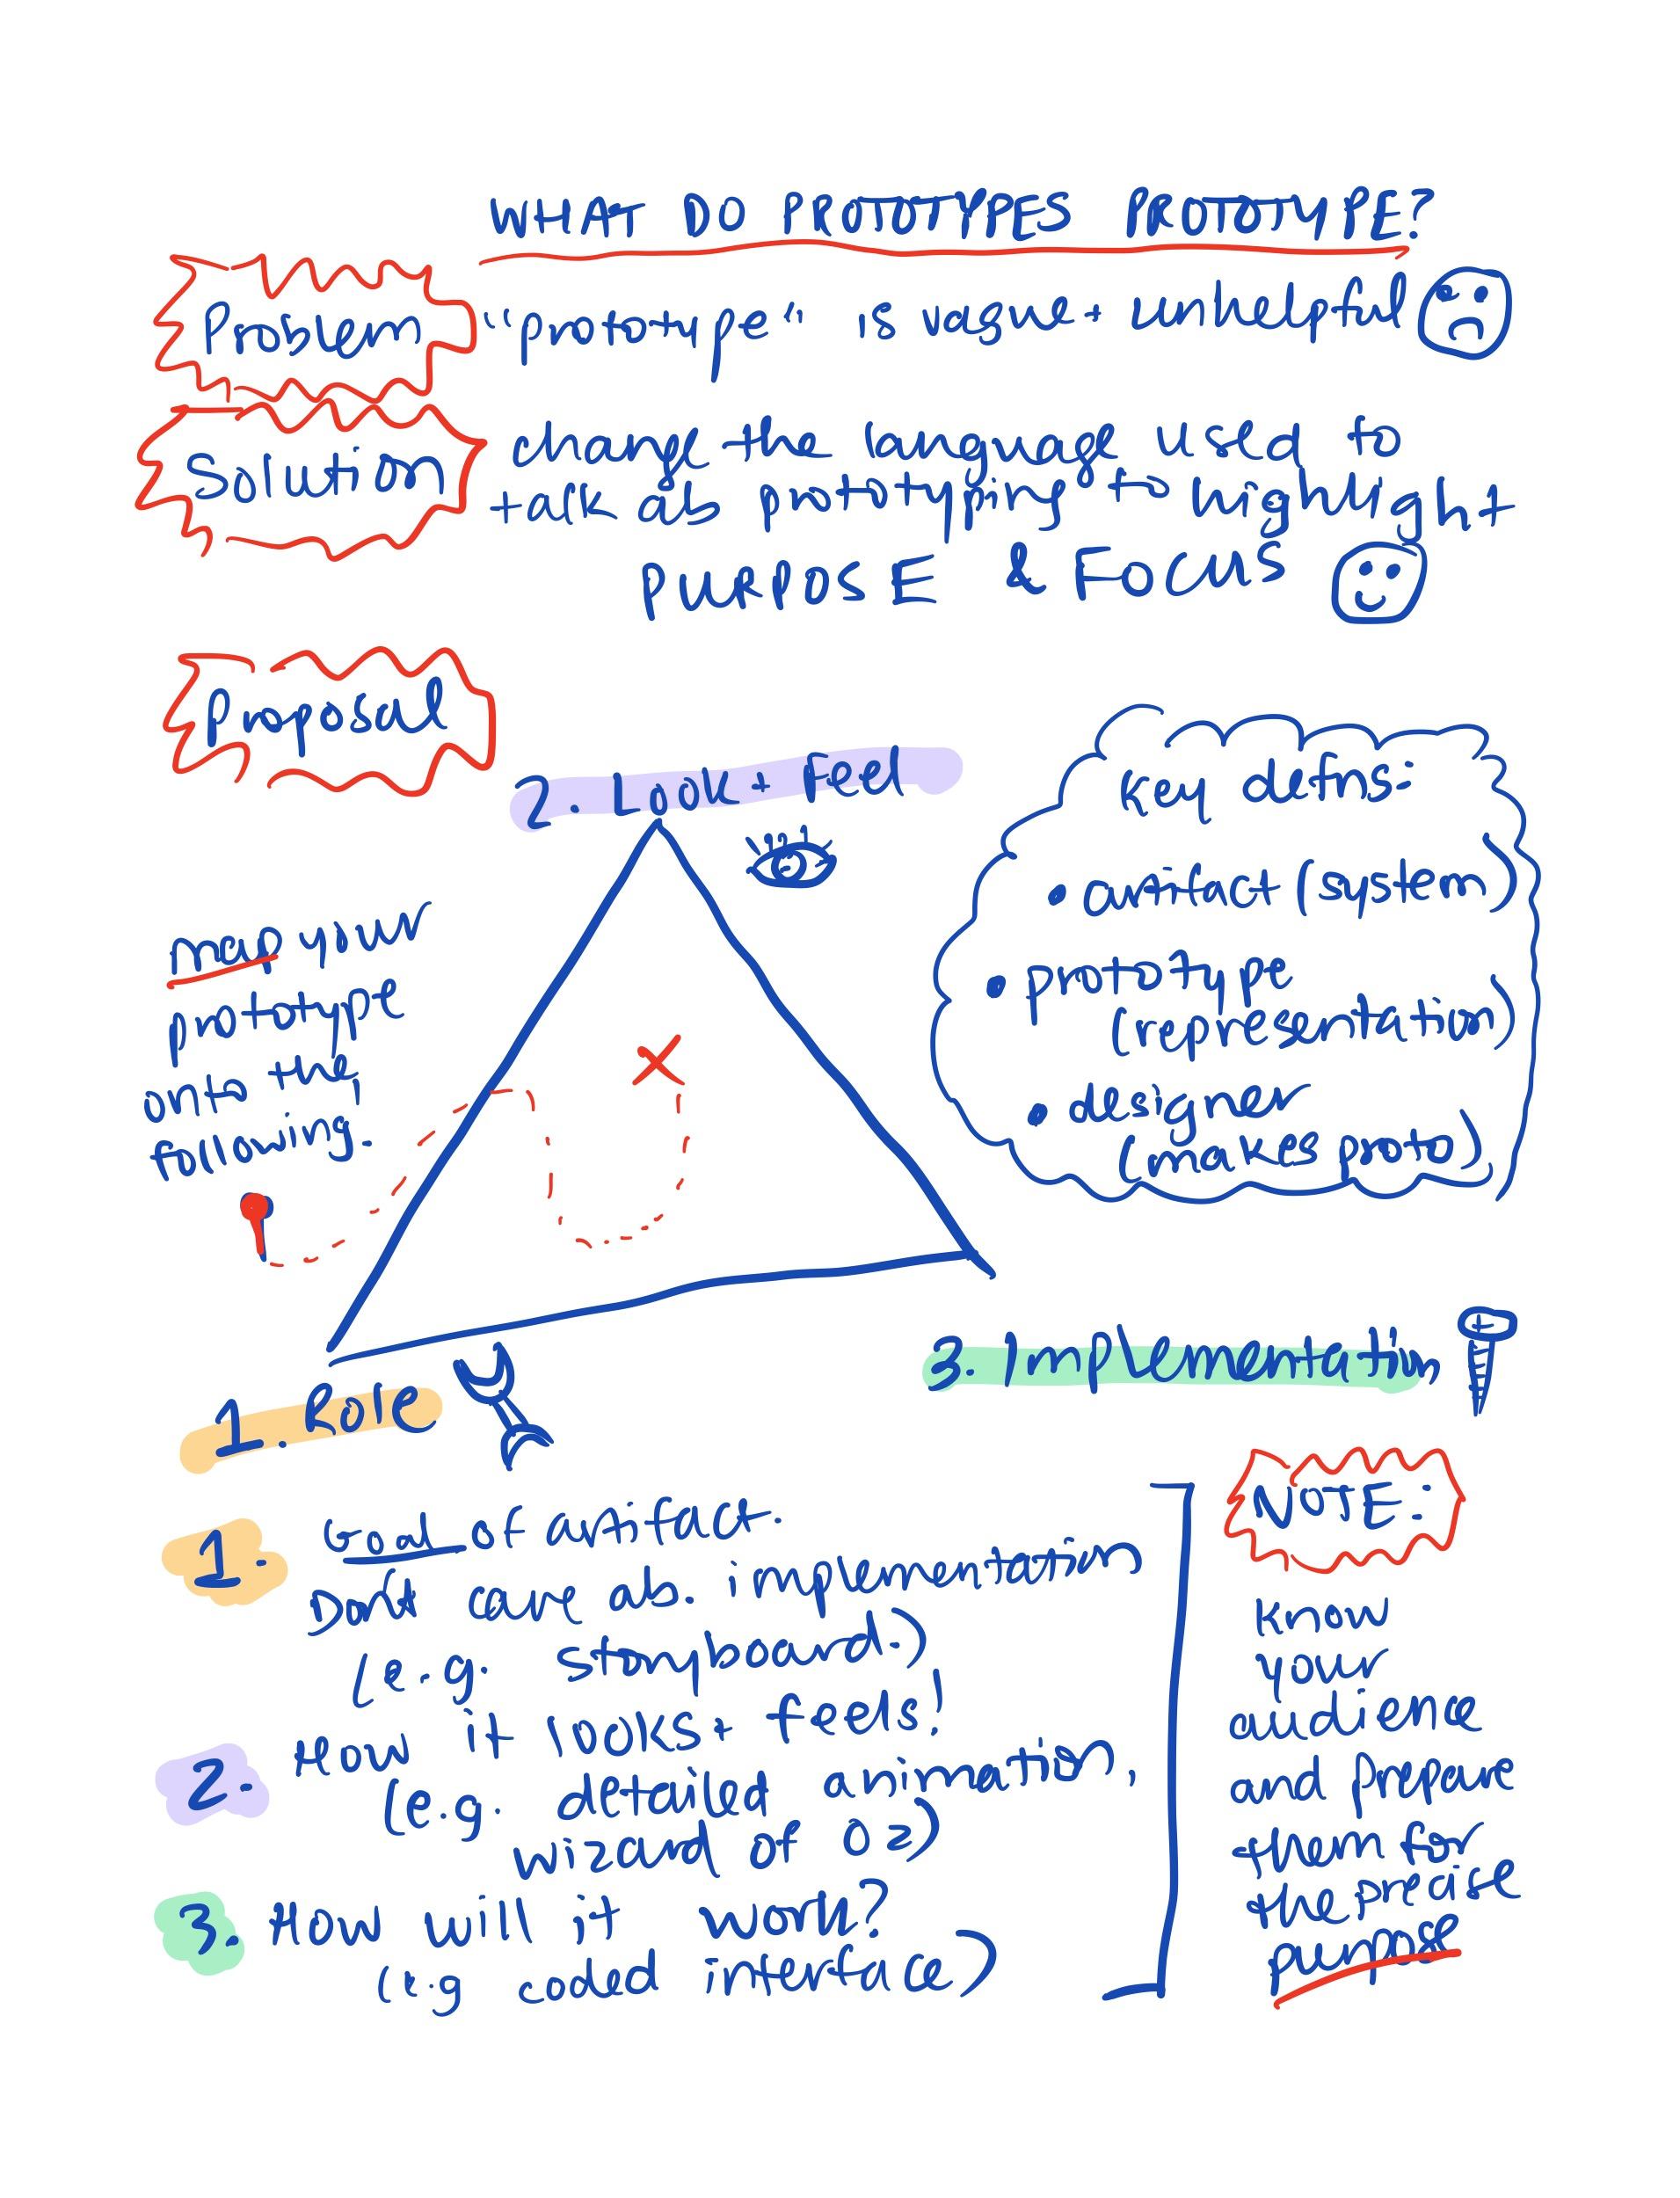 WHAT DO PROTOTYPES PROTOTYPE?
Problem "prototype" is vague + unhelpful
Solution change the language used to
talk ab prototyping to highlight
PURPOSE & FOCUS
Proposal
2. Look + Feel
map your
prototype
onto the
following.
key defns:
• artifact (system)
• prototype
(representation)
• designer
(makes proto)
1. Role
3. Implementation
1. Goal of artifact.
Don't care ab. implementation
(e.g. storyboard.)
2. How it looks + feels!
(e.g. detailed animation,
wizard of Oz)
3. How will it work?
(e.g coded interface)
NOTE:
know
your
audience
and prepare
them for
the precise
purpose